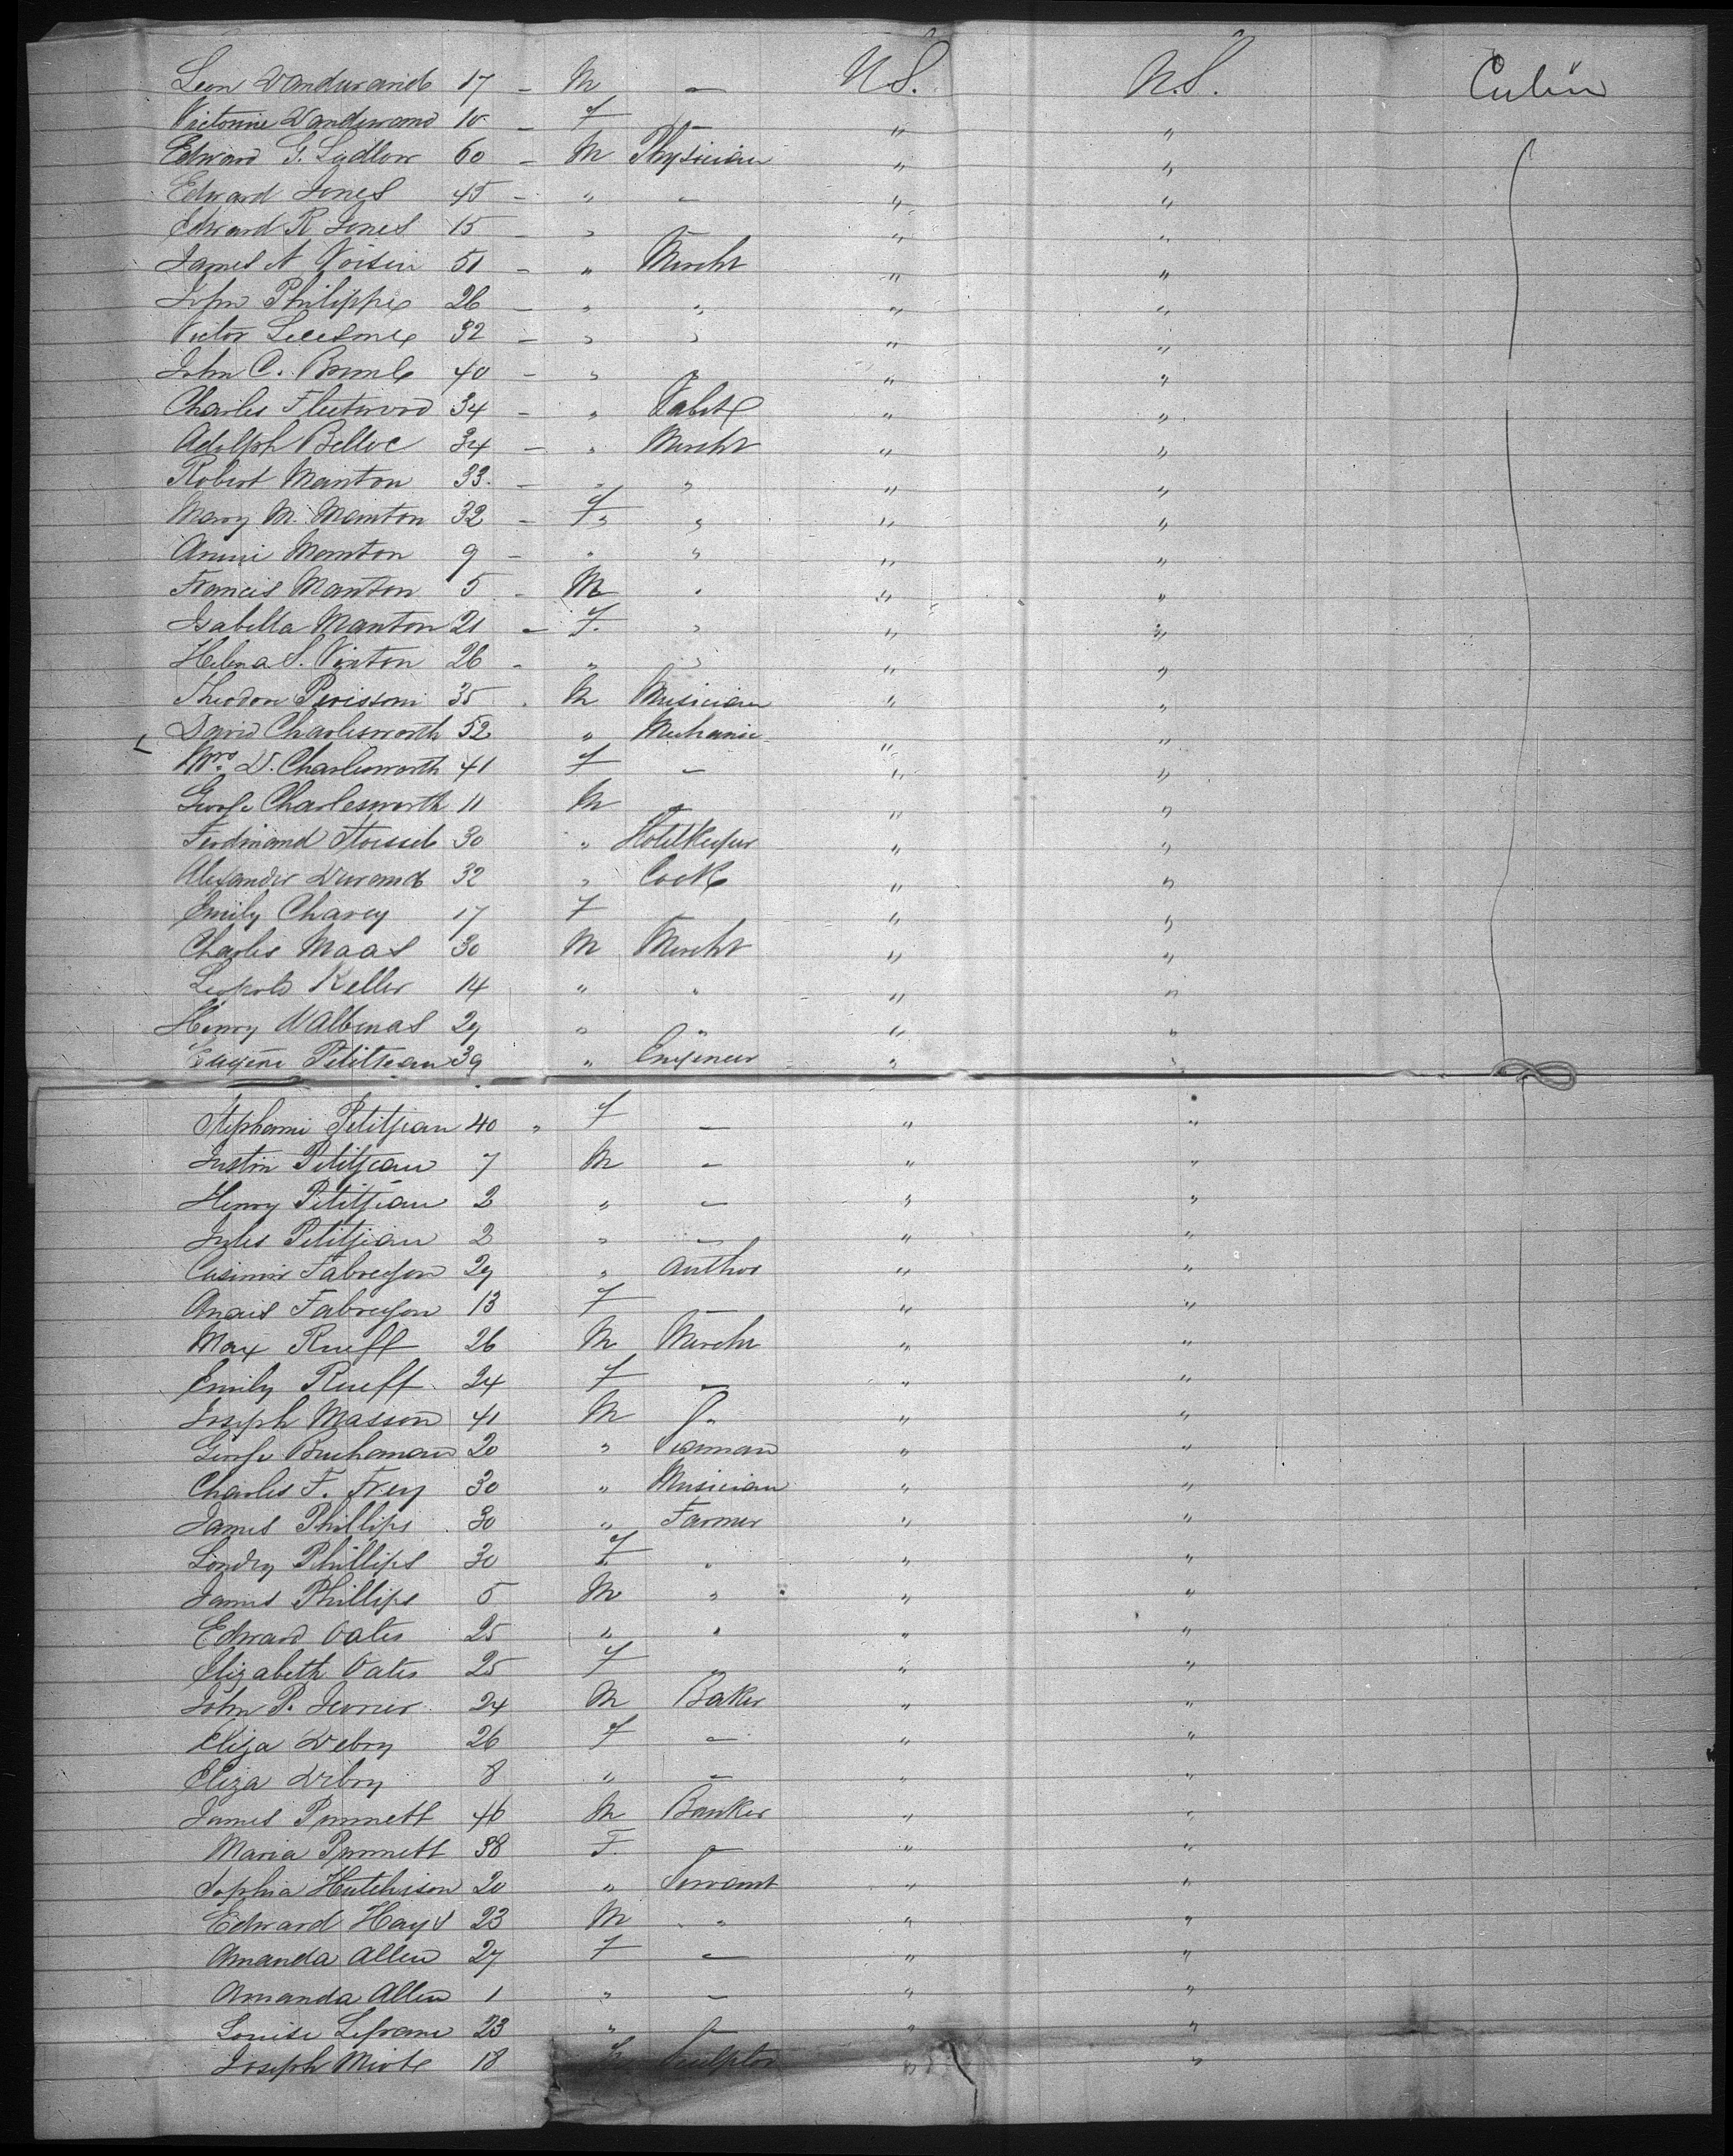 Leon Vandurand 17 - M - U.S. U.S. Cabin
Victorine Vandurand 10 - F - " "
Edward G. Ludlow 60 - M Physician " "
Edward Jones 45 - " - " "
Edward R Jones 15 - " " "
James A Voisin 51 - " Mercht " "
John Philippe 26 - " " " "
Victor 32 - " " " "
John C. 40 - " " " "
Charles Fleetwood 34 - " " "
Adolph Belloc 34 - " Mercht " "
Robert Manton 33 - " " " "
Mary M. Manton 32 - F " " "
Annie Manton 9 - " " " "
Francis Manton 5 - M " " "
Isabella Manton 21 - F. " " "
Helena S. Vinton 26 - " " " "
Theodore 35 - M Musician " "
David Charlesworth 52 " Mechanic " "
Mrs. D. Charlesworth 41 F - " "
George Charlesworth 11 M - " "
Ferdinand 30 " Hotelkeeper " "
Alexander Durand 32 " Cook " "
Emily Charey 17 F " "
Charles Maas 30 M Mercht " "
Leopold Keller 14 " " " "
Henry D'Albenas 29 " " " "
Eugene Petitjean 39 " Engineer " "
Stephanie Petitjean 40 " F - " "
Justin Petitjean 7 M - " "
Henry Petitjean 2 " - " "
Jules Petitjean 2 " - " "
Casimir Fabregon 29 " Author " "
Anais Fabregon 13 F " "
Max Rueff 26 M Mercht " "
Emily Rueff 24 F - " "
Joseph Masson 41 M " " "
George Buchanan 20 " Seaman " "
Charles F. Frey 30 " Musician " "
James Phillips 30 " Farmer " "
Phillips 30 F " " "
James Phillips 5 M " " "
Edward Oates 25 " " " "
Elizabeth Oates 25 F " " "
John P. 24 M Baker " "
Eliza Debry 26 F - " "
Eliza Debry 8 " - " "
James Pummett 46 M Banker " "
Maria Pummett 38 F. - " "
Sophia Hutchison 20 " Servant " "
Edward Hays 23 M " " "
Amanda Allen 27 F - " "
Amanda Allen 1 " - " "
Louise Lefranc 23 " - " "
Joseph 18 M Sculptor " "